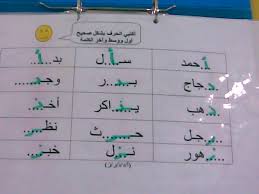 أكتبي الحرف بشكل صحيح
أول ووسط وآخر الكلمة
أحمد سأل بدأ
دجاج بدر وجد
ذهب يذاكر أخذ
رجل حرث نظر
زهور نزل خبز